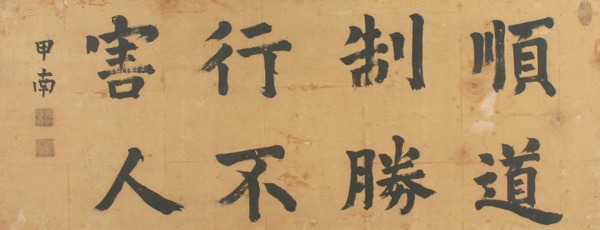 順道
制勝
行不
害人
甲南